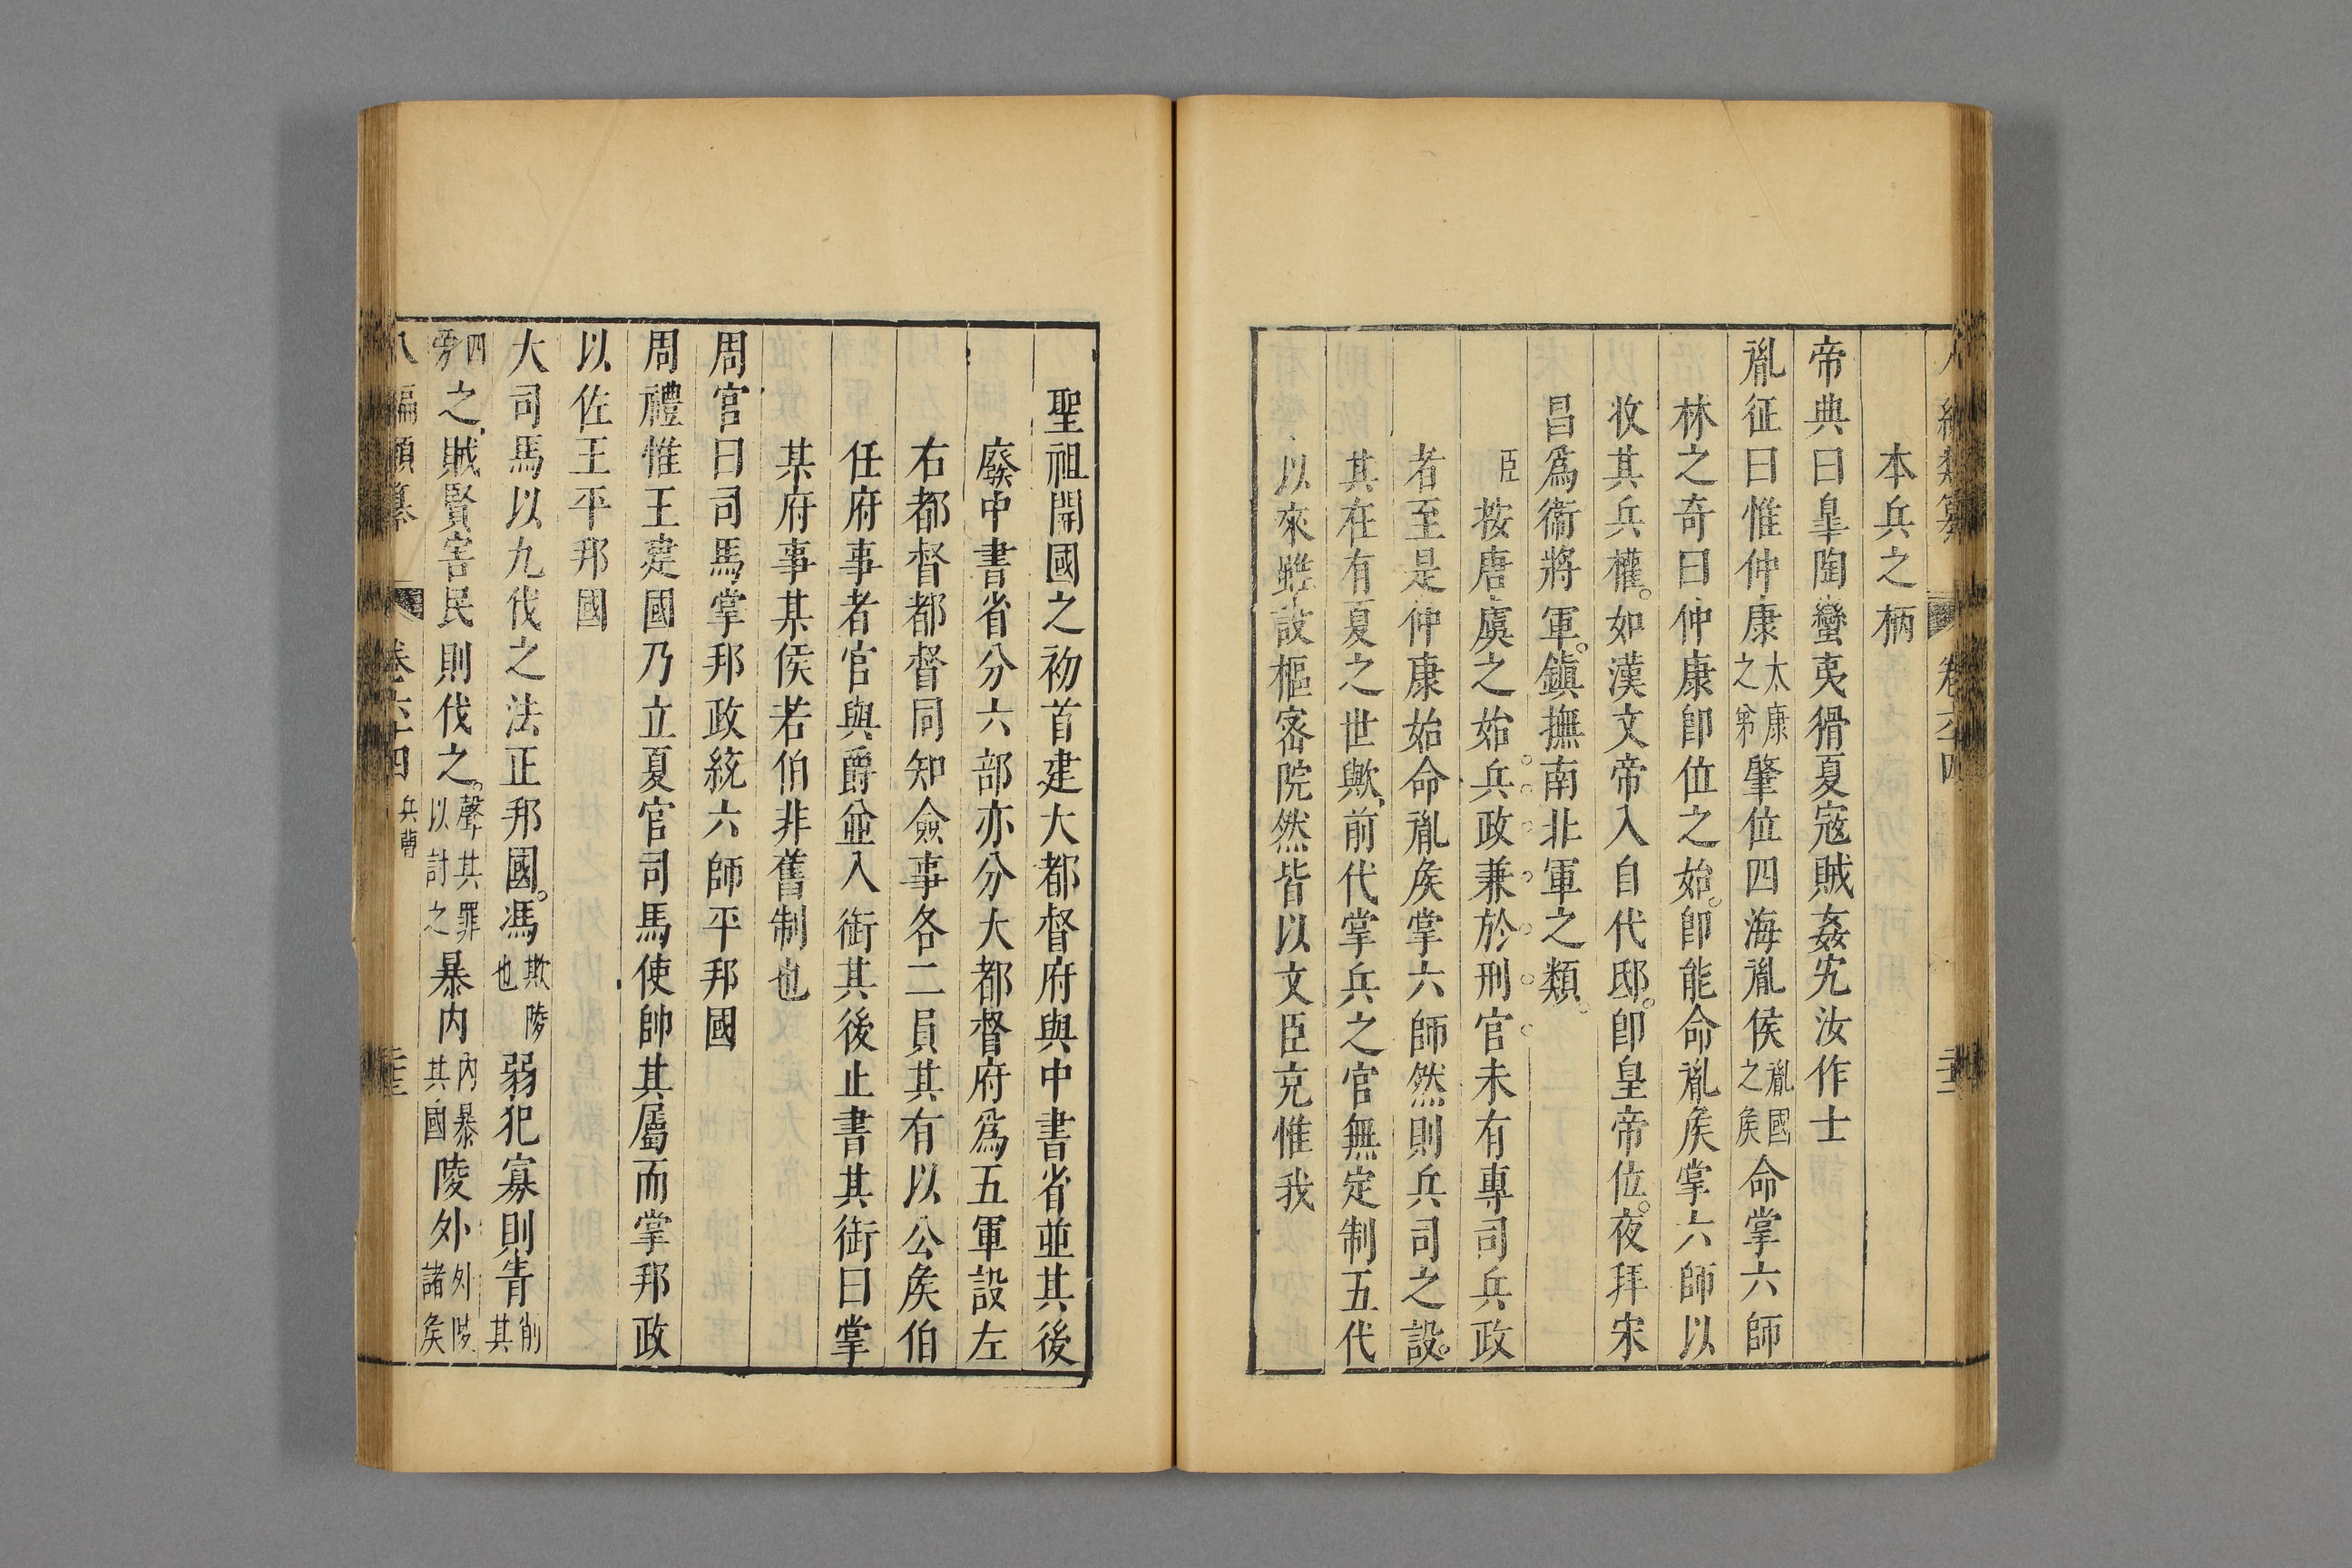 八編類纂 卷六十四
本兵之柄
帝典曰皐陶蠻夷猾夏寇賊姦宄汝作士
胤征曰惟仲康太康之弟肇位四海胤侯胤國之矦命掌六師
林之奇曰仲康卽位之始卽能命胤矦掌六師以
收其兵權如漢文帝入自代邸卽皇帝位夜拜宋
昌爲衞將軍鎭撫南北軍之類
臣按唐虞之始兵政兼於刑官未有專司兵政
者至是仲康始命胤矦掌六師然則兵司之設
其在有夏之世歟前代掌兵之官無定制五代
以來雖設樞密院然皆以文臣充惟我
聖祖開國之初首建大都督府與中書省並其後
廢中書省分六部亦分大都督府爲五軍設左
右都督都督同知僉事各二員其有以公矦伯
任府事者官與爵並入銜其後止書其銜曰掌
某府事某侯若伯非舊制也
周官曰司馬掌邦政統六師平邦國
周禮惟王建國乃立夏官司馬使帥其屬而掌邦政
以佐王平邦國
大司馬以九伐之法正邦國馮欺陵也弱犯寡則眚削其
四旁之賊賢害民則伐之聲其罪以討之暴内内暴其國陵外外陵諸矦
八編類纂 卷六十四 兵曹